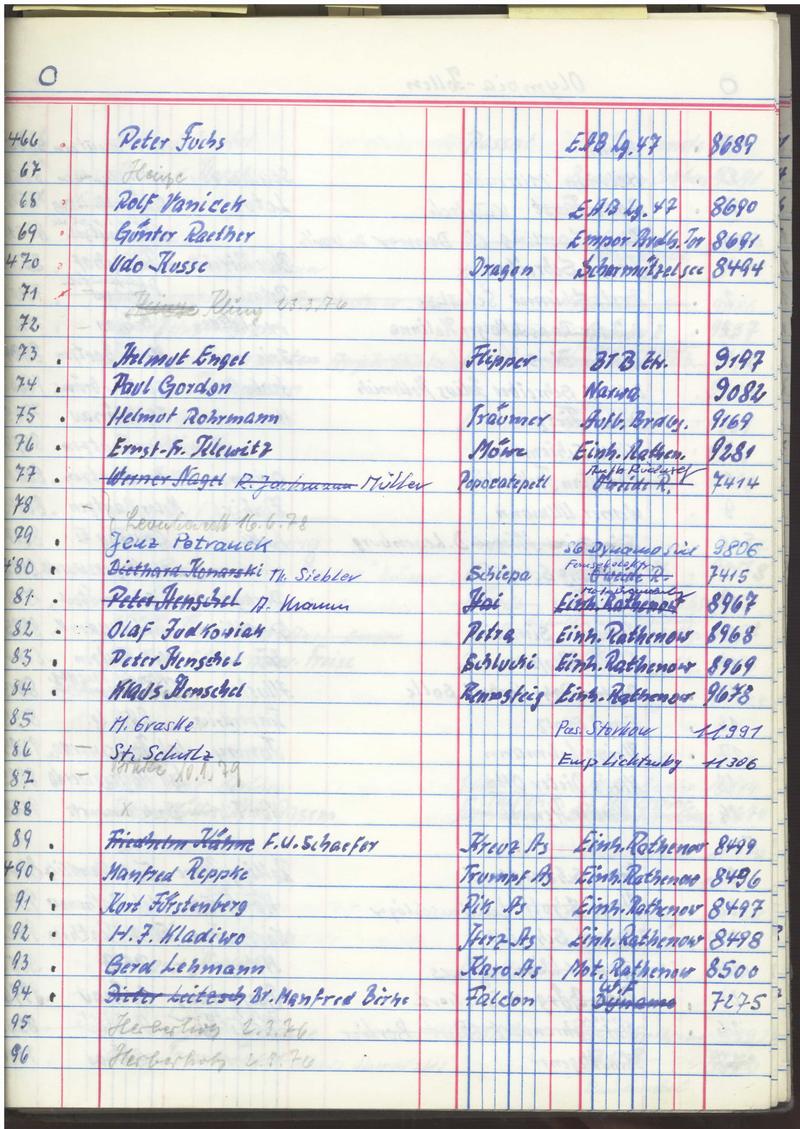 O
466 Peter Fuchs EAB Lg. 47 8689
67 Heinze
68 Rolf Vanicek EAB Lg. 47 8690
69 Günter Raether Empor Brdb. Tor 8691
470 Udo Kusse Dragon Scharmützelsee 8494
71 Kling 23.3.76
72
73 Helmut Engel Flipper BTB 9197
74 Paul Gordon Narwa 9082
75 Helmut Rohrmann Träumer Aufb. Brdbg. 9169
76 Ernst-Fr. Klewitz Möwe Einh. Rathen. 9281
77 Werner Nagel Müller Popocatepetl 7414
78 16.6.78
79 Jenz Petranck SG Dynamo 9806
480 Diethard Konarski Th. Siebler Schiepa 7415
81 Peter Henschel A. Hai Einh. Rathenow 8967
82 Olaf Judkowiak Petra Einh. Rathenow 8968
83 Peter Henschel Schlucki Einh. Rathenow 8969
84 Klaus Henschel Rennsteig Einh. Rathenow 9678
85 M. Graske Pas. Storkow 11991
86 – St. Schulz Emp Lichtenbg 11306
87 –
88 x
89 Friedhelm Kähne F.W. Schaefer Kreuz As Einh. Rathenow 8499
490 Manfred Reppke Trumpf As Einh. Rathenow 8496
91 Kurt Fürstenberg Pik As Einh. Rathenow 8497
92 H.F. Kladiwo Herz As Einh. Rathenow 8498
93 Gerd Lehmann Karo As Mot. Rathenow 8500
94 Dieter Leitzsch Dr. Manfred Birke Falcon W.F. Dynamo 7275
95 Herberholz 2.3.76
96 Herberholz 2.3.76